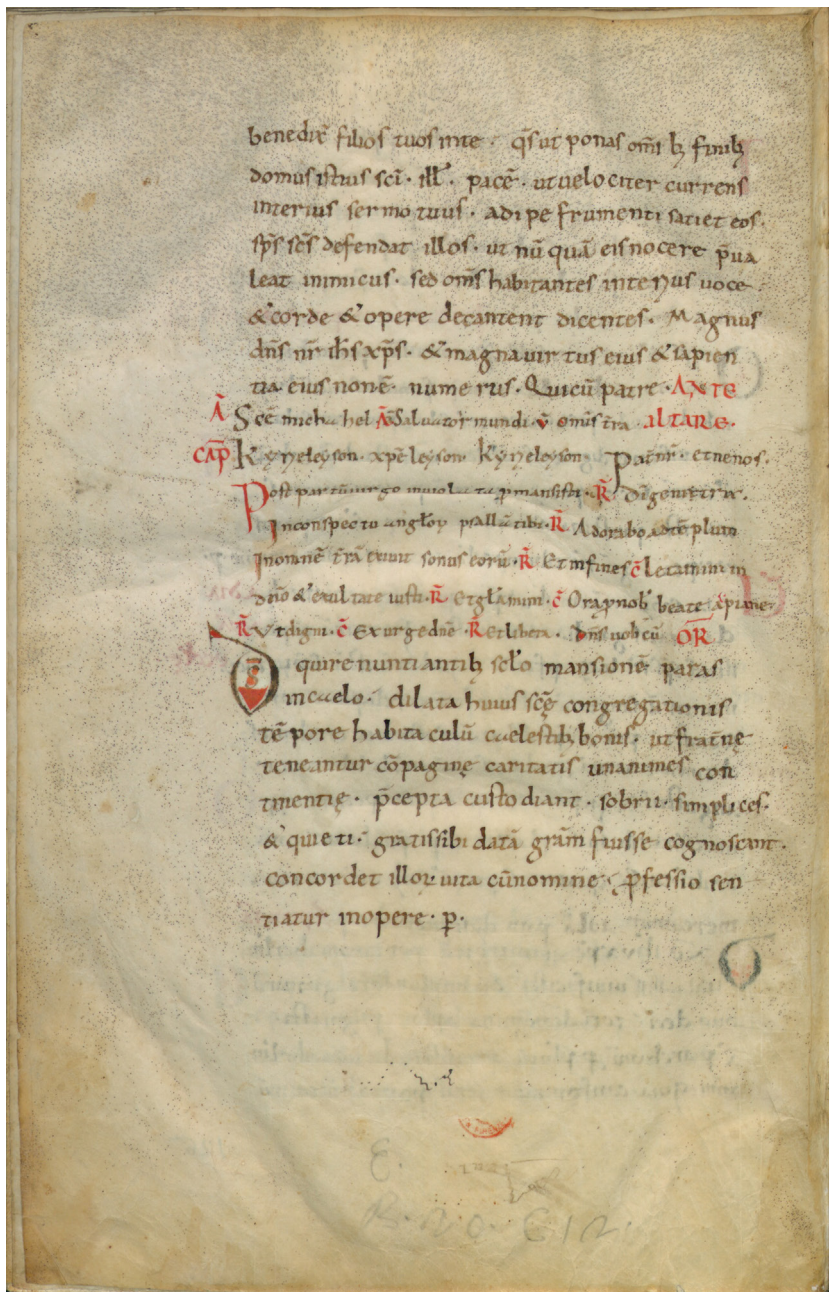 benedix̄ filios tuos inte · q̄s ut ponas om̄ib; finib;
domus istius sc̄i · ill̄ · pacē · ut uelociter currens
interius sermo tuus · adipe frumenti satiet eos ·
sp̄s sc̄s defendat illos · ut nūquā eis nocere p̄ua
leat inimicus · sed om̄s habitantes interius uoce ·
& corde & opere decantent dicentes · Magnus
dn̄s nr̄ ih̄s xp̄s · & magna uirtus eius & sapien
tia eius non ē numerus · Qui cū patre · ANTE
Ā Sc̄e michahel Ā Saluator mundi · v̄ em̄s t̄ra · ALTARE ·
CAP̄ Kyrieleyson · xp̄eleyson · Kyrieleyson · Pat̄ nr̄ · et ne nos ·
Post partū uirgo inuiolata p̄mansisti · R̄ Dī genitrix ·
In conspectu anglo℞ psallā tibi · R̄ Adorabo ad tēplum
In omnē t̄rā exiuit sonus eorū · R̄ Et in fines c̄ Letamini in
dn̄o & exultate iusti · R̄ Et gl̄amini · c̄ Ora p̄ nob̄ beate
R̄ Ut digni · c̄ Exurge dn̄e · R̄ Et libera · Dn̄s uobcū OR̄
Ds̄ qui renuntiantib; sc̄lo mansionē paras
in caelo · dilata huius sc̄ę congregationis
tēpore habitaculū caelestib; bonis · ut frat̄nę
teneantur cōpagine caritatis unanimes con
tinentię · p̄cepta custodiant · sobrii · simplices ·
& quieti · gratis sibi datā grām fuisse cognoscant ·
concordet illo℞ uita cū nomine · p̄fessio sen
tiatur in opere · p̄ ·